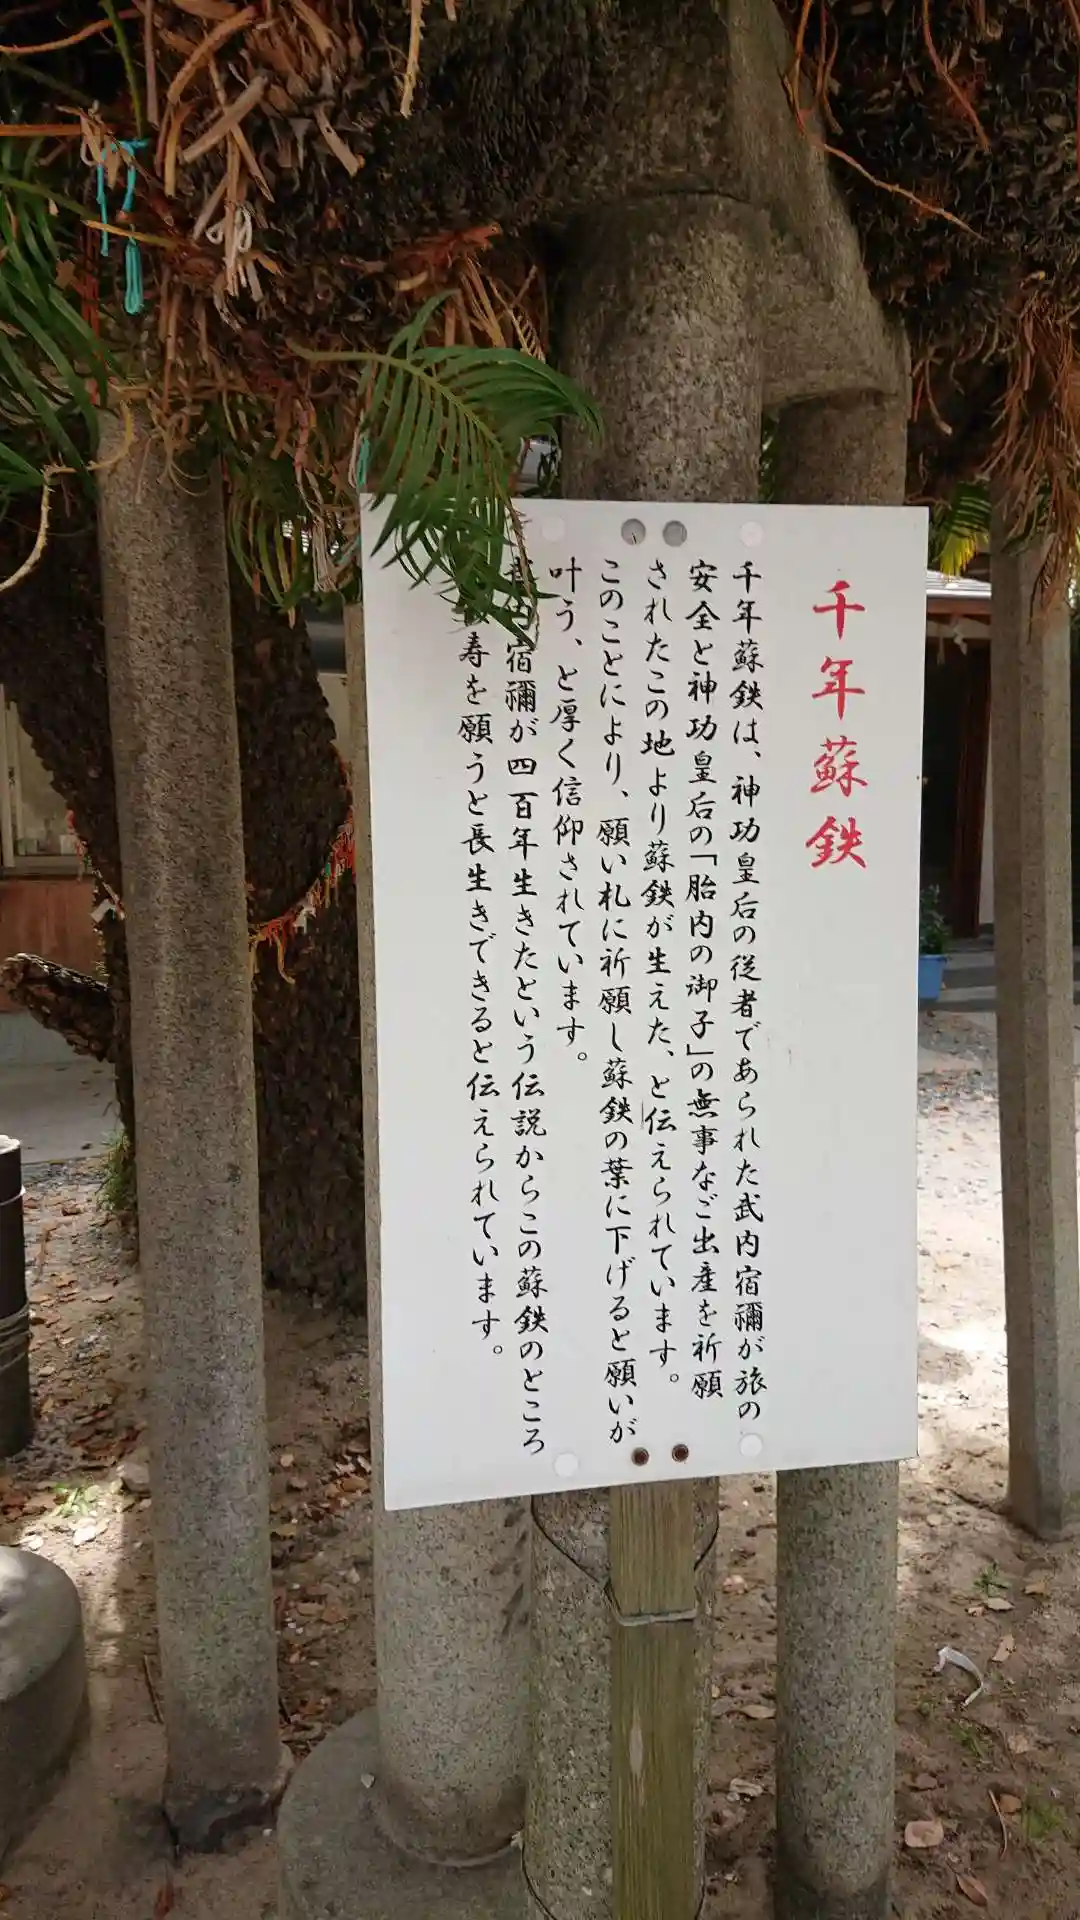 千年蘇鉄
千年蘇鉄は、神功皇后の従者であられた武内宿禰が旅の
安全と神功皇后の「胎内の御子」の無事なご出産を祈願
されたこの地より蘇鉄が生えた、と伝えられています。
このことにより、願い札に祈願し蘇鉄の葉に下げると願いが
叶う、と厚く信仰されています。
内宿禰が四百年生きたという伝説からこの蘇鉄のところ
寿を願うと長生きできると伝えられています。